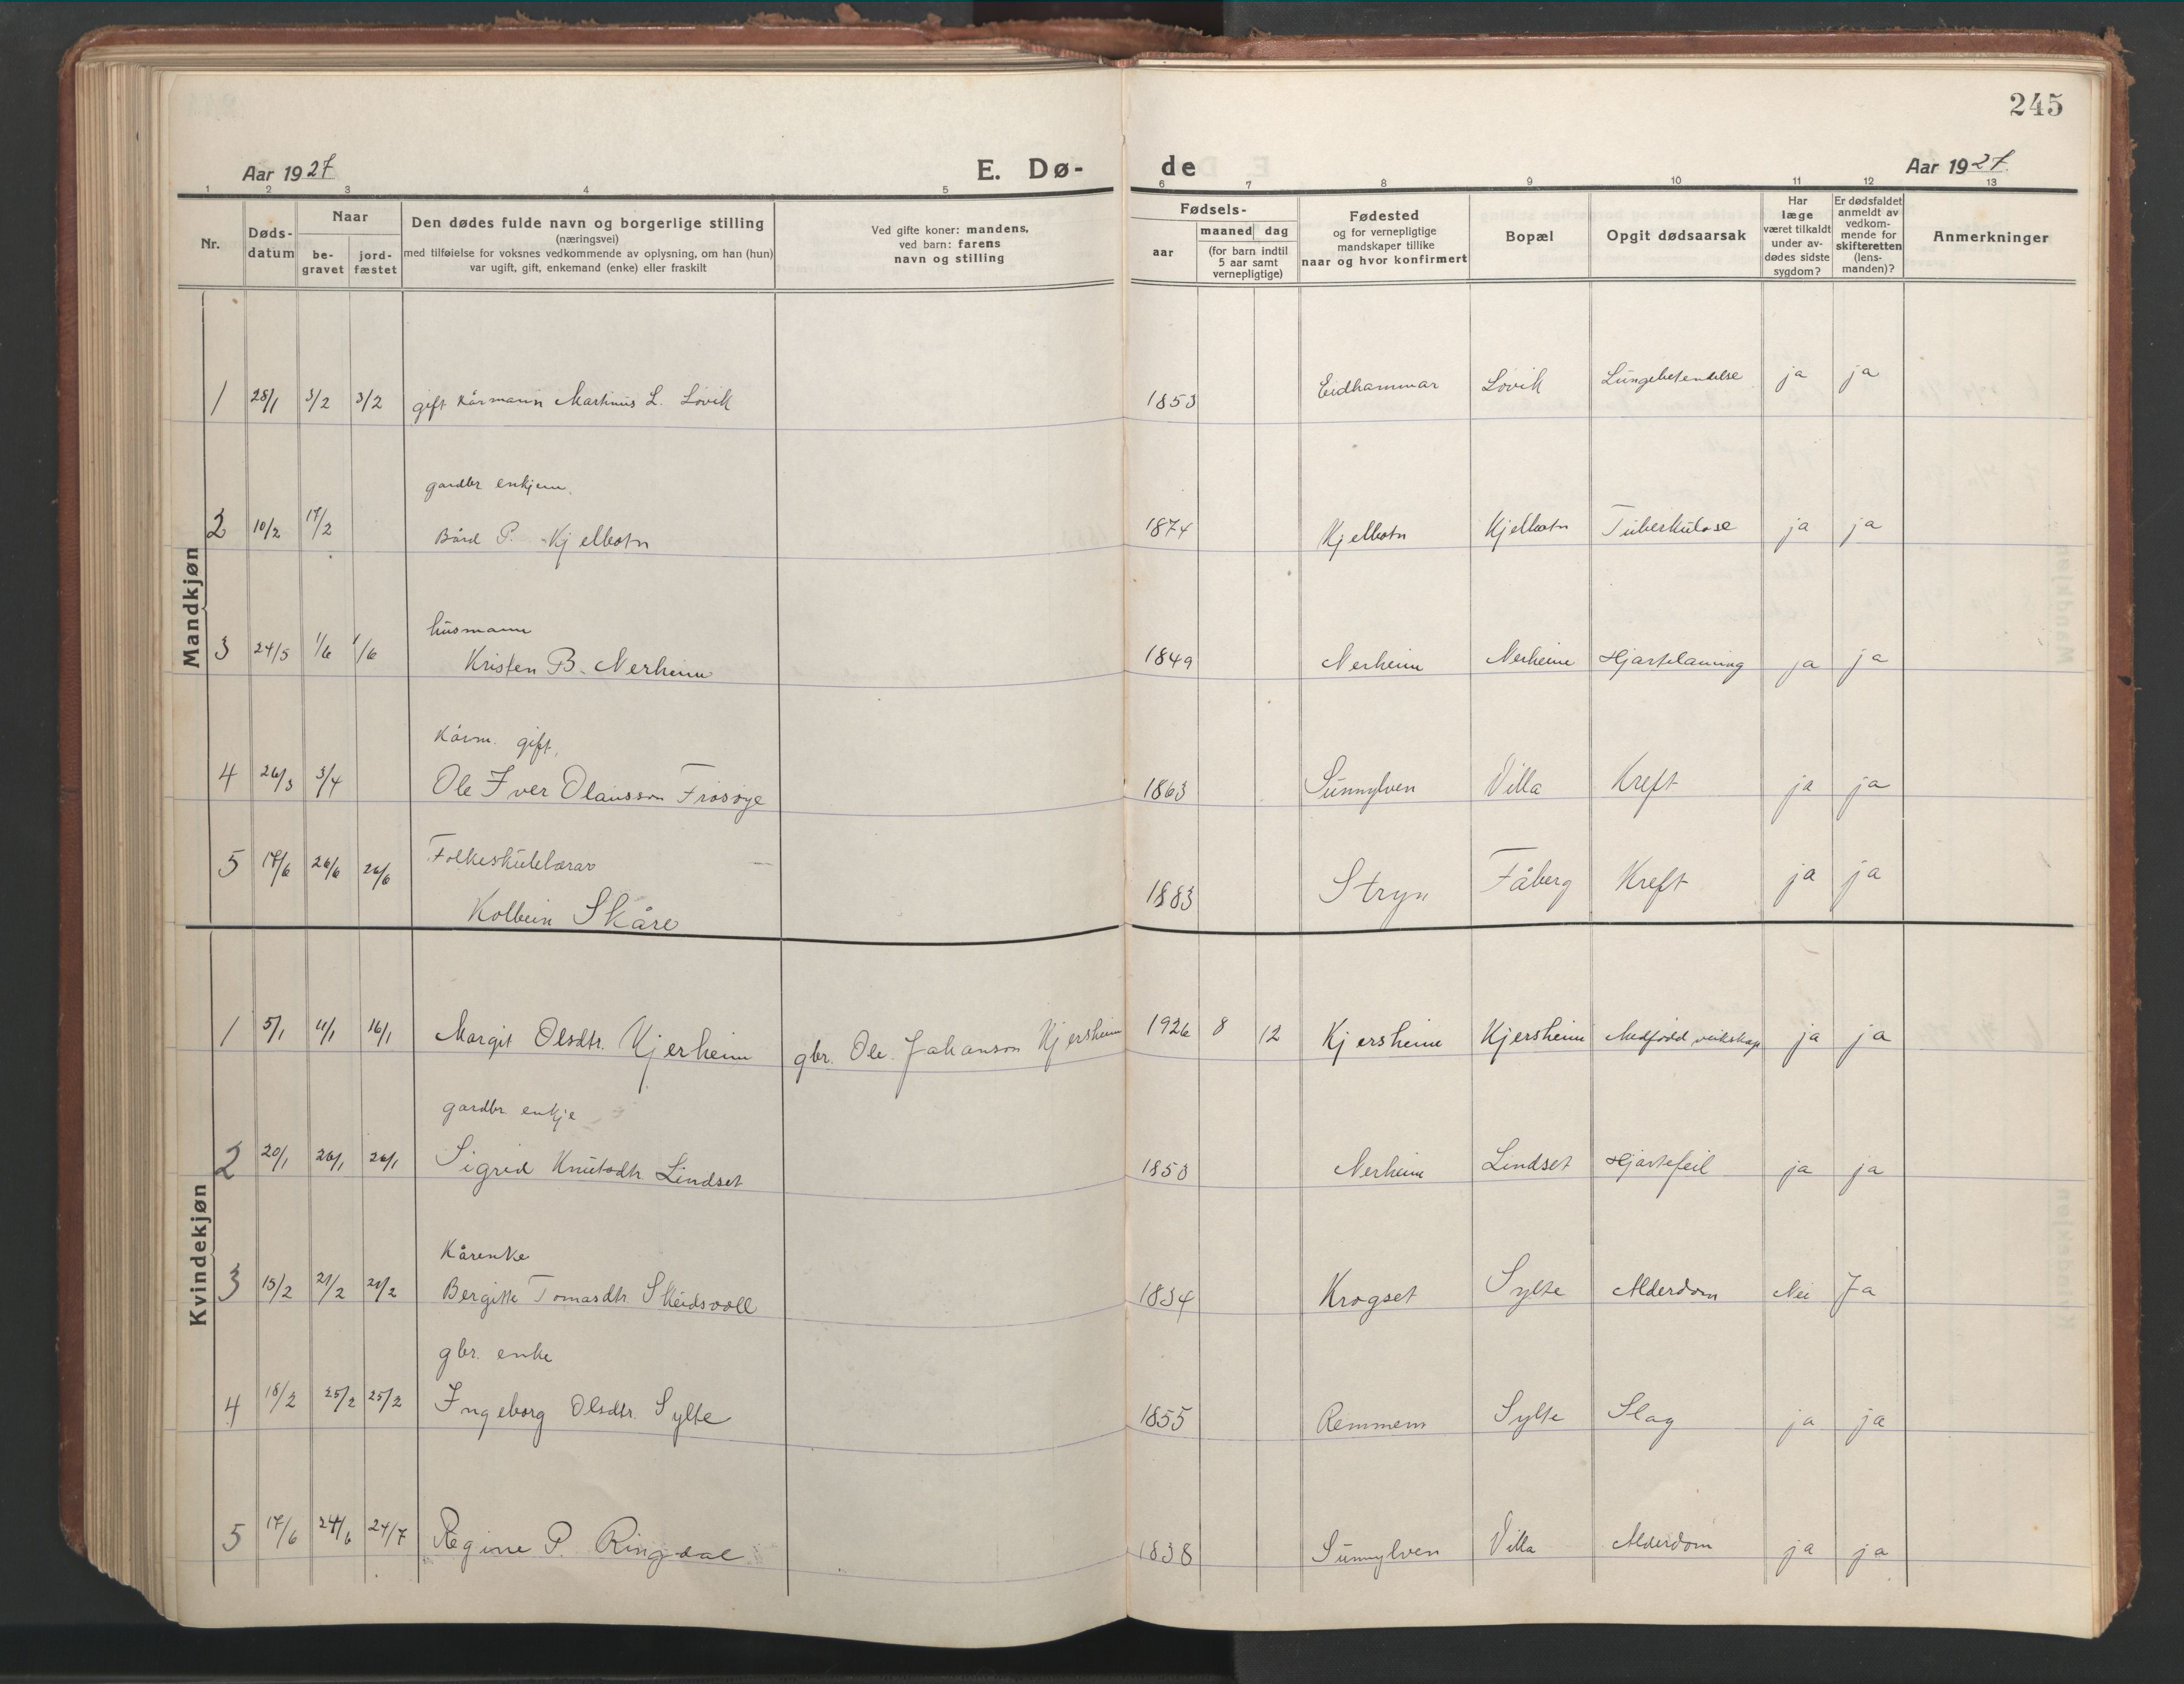 245
Aar 1927 E. Dø- de Aar 1927.
1 2 3 4 5 6 7 8 9 10 11 12 13
Nr.
Døds-
datum
Naar
be-
gravet
jord-
fæstet
Den dødes fulde navn og borgerlige stilling
(næringsvei)
med tilføielse for voksnes vedkommende av oplysning, om han (hun)
var ugift, gift, enkemand (enke) eller fraskilt
Ved gifte koner: mandens,
ved barn: farens
navn og stilling
Fødsels-
aar
maaned dag
(for barn indtil
5 aar samt
vernepligtige)
Fødested
og for vernepligtige
mandskaper tillike
naar og hvor konfirmert
Bopæl
Opgit dødsaarsak
Har
læge
været tilkaldt
under av-
dødes sidste
sygdom?
Er dødsfaldet
anmeldt av
vedkom-
mende for
skifteretten
(lens-
manden)?
Anmerkninger
Mandkjøn
1 28/1 3/2 3/2 gift kårmann Martinus L. Lovik 1853 Eidhammar Lovik Lungebetendelse ja ja
gardbr enkjem.
2 10/2 17/2 Bård P. Kjelbotn 1874 Kjelbotn Kjelbotn Tuberkulose ja ja
husmann
3 24/5 1/6 1/6 Kristen B. Nerheim 1849 Nerheim Nerheim Hjartelaming ja ja
Kårm. gift.
4 26/3 3/4 Ole Iver Olausson Frøsøye 1863 Sunnylven Villa Kreft ja ja
Folkeskulelærar
5 17/6 26/6 26/6 Kolbein Skåre 1883 Stryn Fåberg Kreft ja ja
Kvindekjøn
1 5/1 11/1 16/1 Margit Olsdtr. Kjerheim gbr. Ole Johanson Kjersheim 1926 8 12 Kjersheim Kjersheim Medfødd veikskap ja ja
gardbr. enkje
2 20/1 26/1 26/1 Sigrid Knutsdtr Lindset 1853 Nerheim Lindset Hjartefeil ja ja
Kårenke
3 15/2 21/2 21/2 Bergitte Tomasdtr Skeidsvoll 1834 Krogset Sylte Alderdom Nei Ja
gbr. enke
4 18/2 25/2 25/2 Ingeborg Olsdtr. Sylte 1855 Remmem Sylte Slag ja ja
5 17/6 24/6 24/7 Regine P. Ringdal 1838 Sunnylven Villa Alderdom ja ja